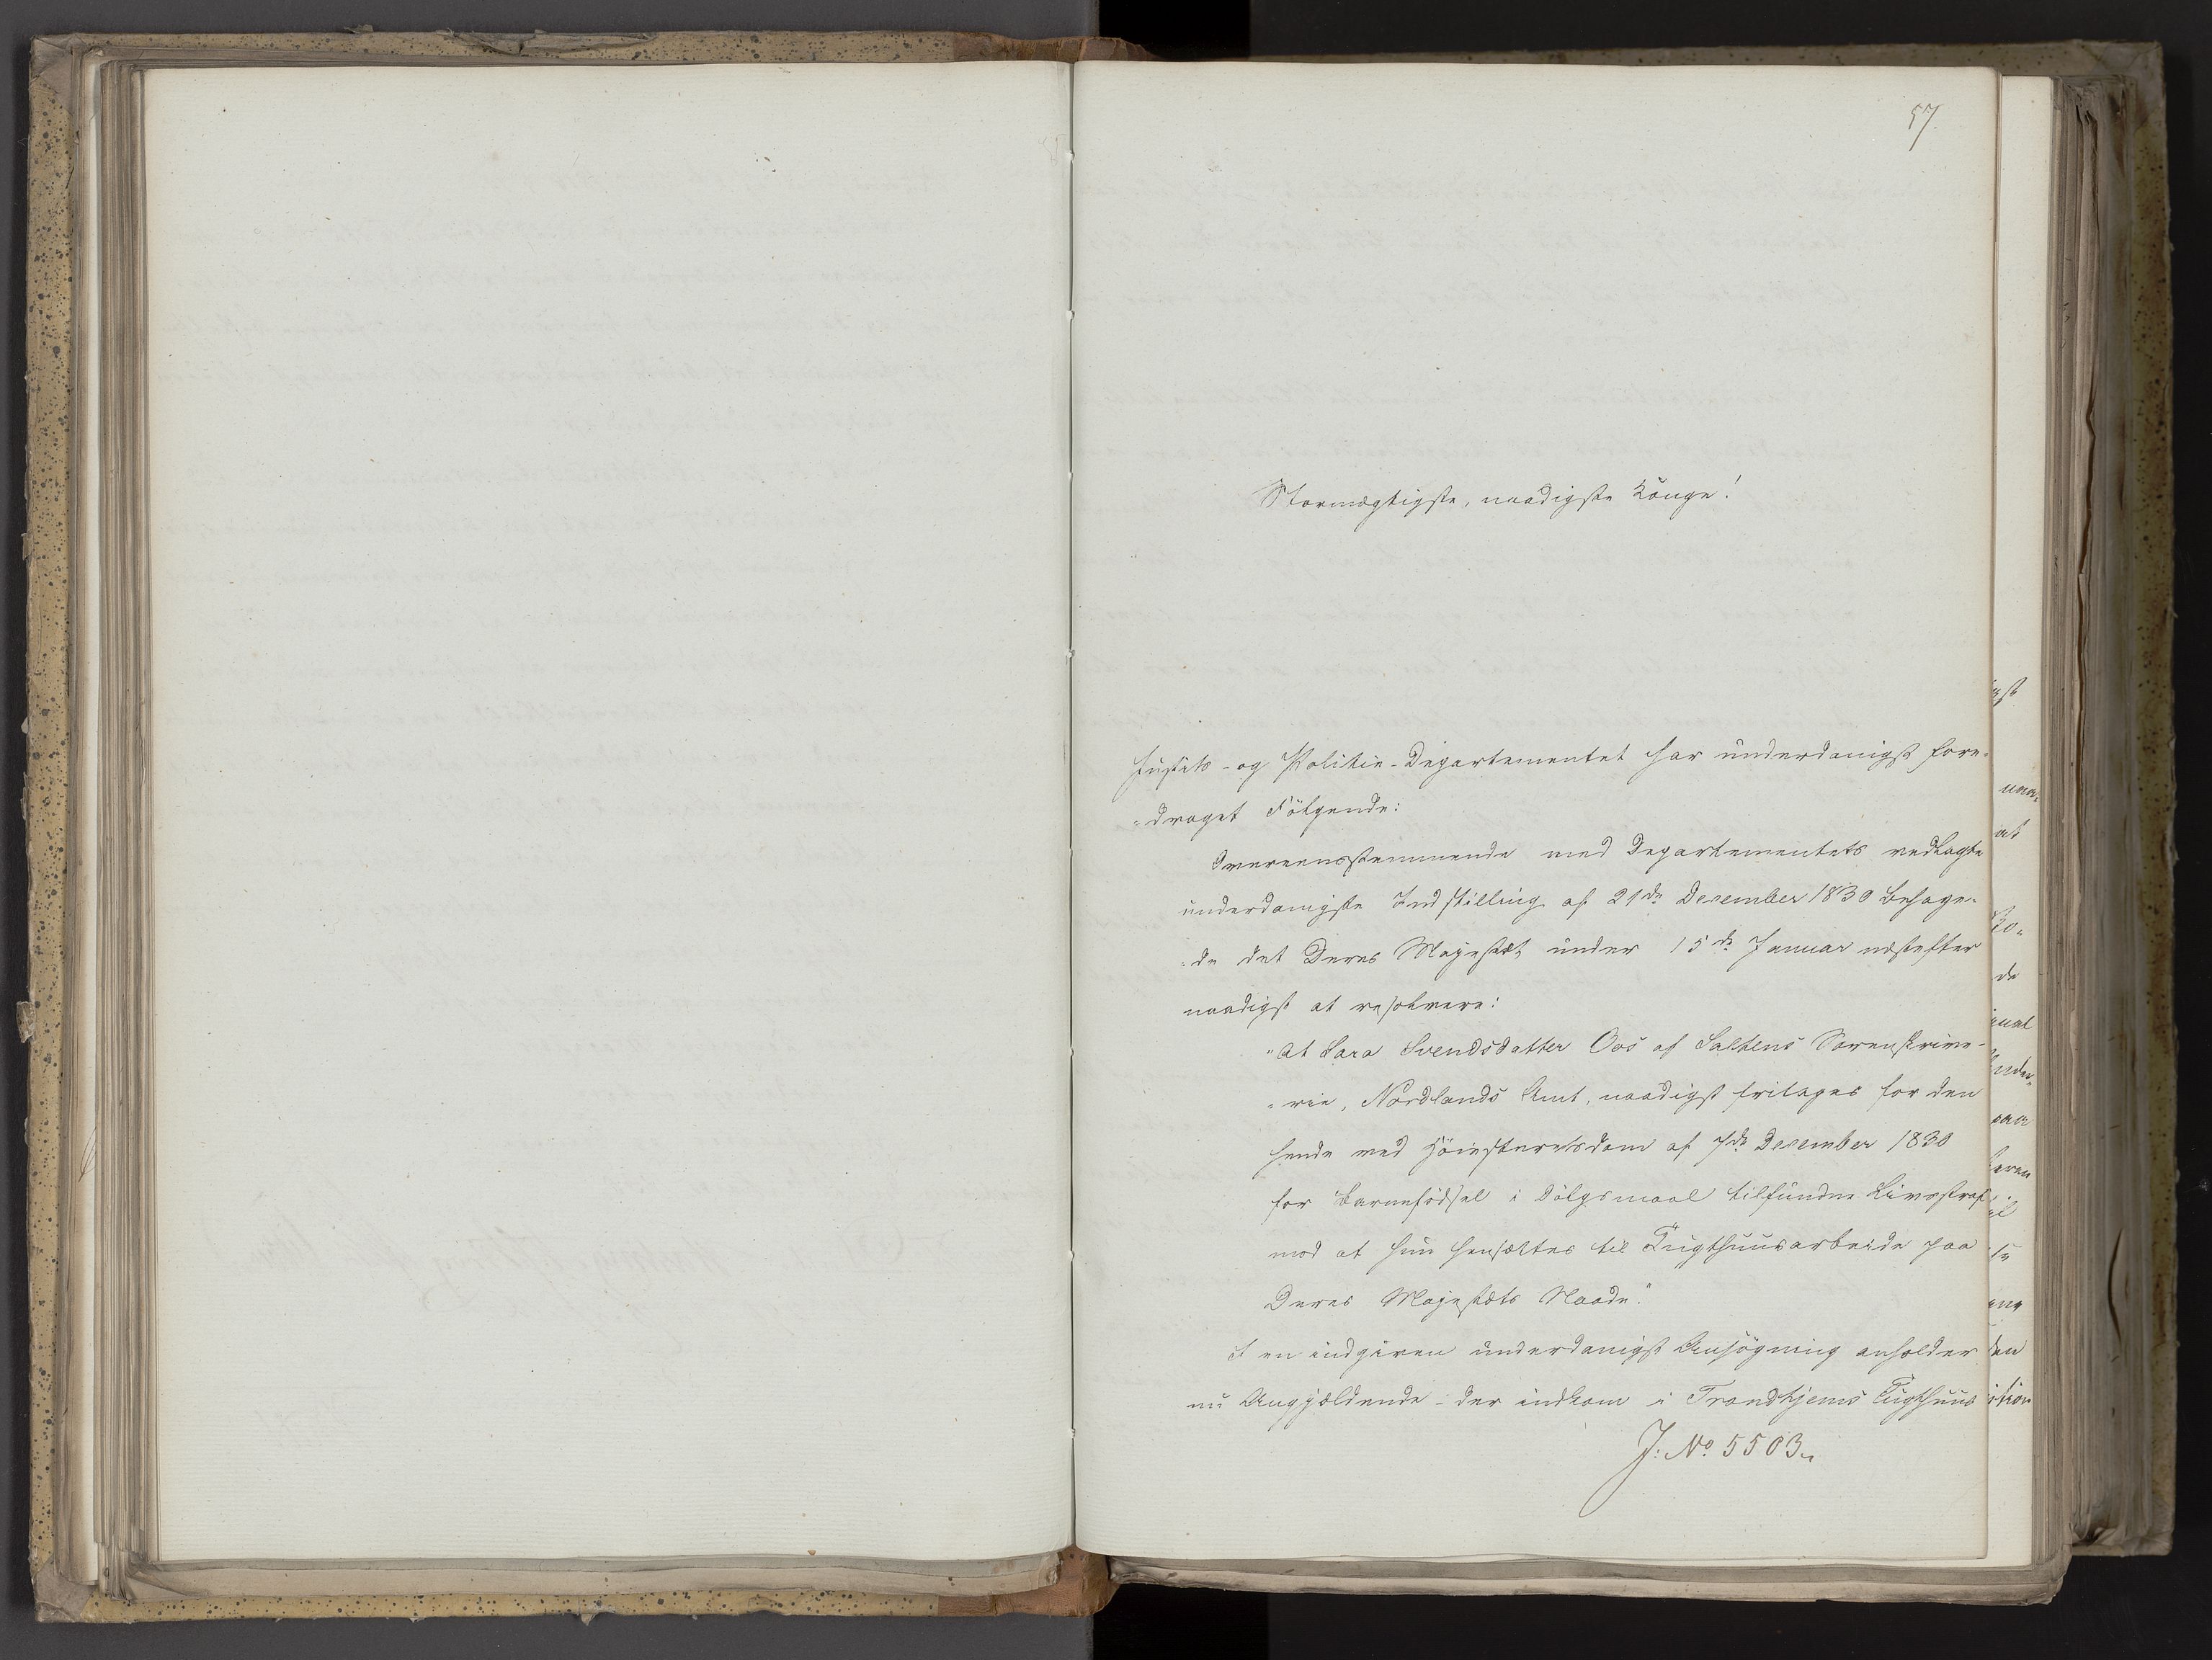 57
Stormægtigste, naadigste Konge!
Justits- og Politie-Departementet har underdanigst fore-
-draget Følgende:
Overeensstemmende med Departementets vedlagte
underdanigste Indstilling af 21de December 1830 behage-
-de det Deres Majestæt under 15de Januar næstefter
naadigst at resolvere:
"At Lara Svendsdatter Oos af Saltens Sorenskrive-
-rie, Nordlands Amt, naadigst fritages for den
hende ved Höiesteretsdom af 7de December 1830
for Barnefödsel i Dölgsmaal tilfundne Livsstraf
mod at hun hensættes til Tugthuusarbeide paa
Deres Majestæts Naade."
I en indgiven underdanigst Ansögning anholder
nu Angjældende - der indkom i Trondhjems Tugthuus
J: No 5503.